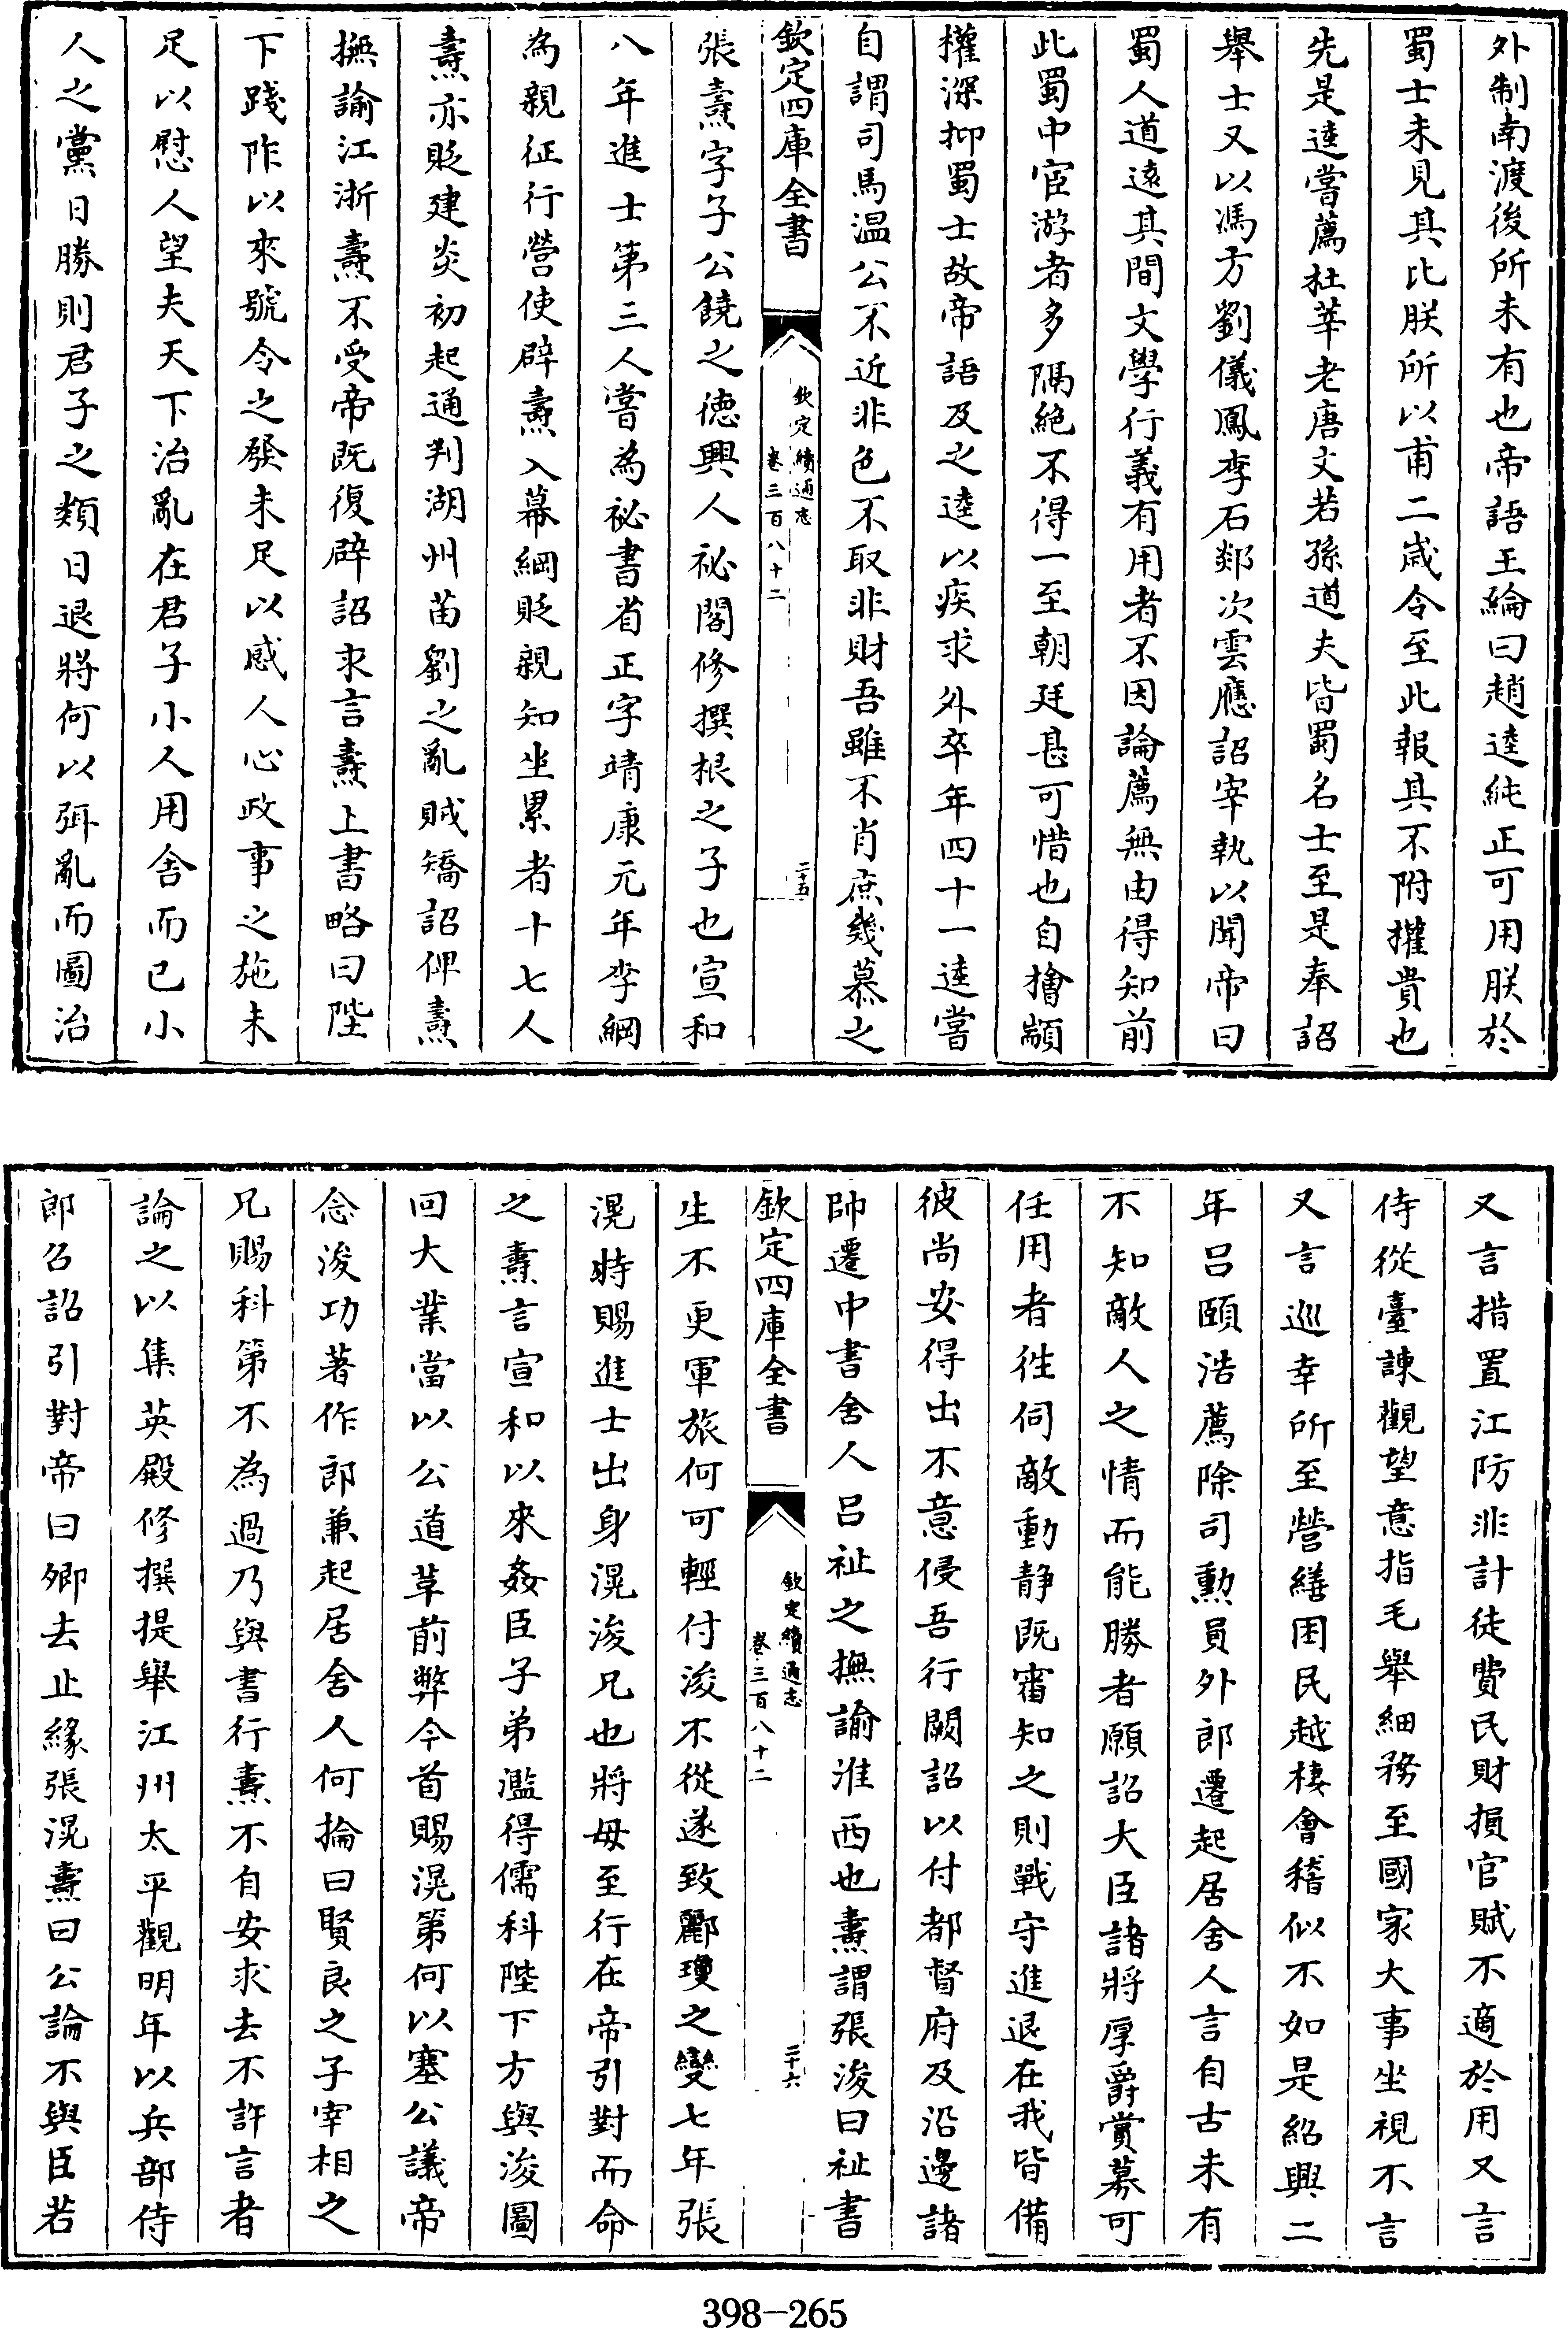 外制南渡後所未有也帝語王綸曰趙逵純正可用朕於
蜀士未見其比朕所以甫二歲令至此報其不附權貴也
先是逵嘗薦杜莘老唐文若孫道夫皆蜀名士至是奉詔
舉士又以馮方劉儀鳳李石郯次雲應詔宰執以聞帝曰
蜀人道遠其間文學行義有用者不因論薦無由得知前
此蜀中宦游者多隔絕不得一至朝廷甚可惜也自檜顓
權深抑蜀士故帝語及之逵以疾求外卒年四十一逵嘗
自謂司馬温公不近非色不取非財吾雖不肖庶幾慕之
欽定四庫全書
欽定續通志
卷三百八十二
二十五
張燾字子公饒之德興人祕閣修撰根之子也宣和
八年進士第三人嘗為祕書省正字靖康元年李綱
為親征行營使辟燾入幕綱貶親知坐累者十七人
燾亦貶建炎初起通判湖州苗劉之亂賊矯詔俾燾
撫諭江浙燾不受帝既復辟詔求言燾上書略曰陛
下踐阼以來號令之發未足以感人心政事之施未
足以慰人望夫天下治亂在君子小人用舍而已小
人之黨日勝則君子之類日退將何以弭亂而圖治
又言措置江防非計徒費民財損官賦不適於用又言
侍從臺諫觀望意指毛舉細務至國家大事坐視不言
又言巡幸所至營繕困民越棲會稽似不如是紹興二
年吕頤浩薦除司勲員外郎遷起居舍人言自古未有
不知敵人之情而能勝者願詔大臣諸將厚爵賞募可
任用者徃伺敵動静既審知之則戰守進退在我皆備
彼尚安得出不意侵吾行闕詔以付都督府及沿邊諸
帥遷中書舍人吕祉之撫諭淮西也燾謂張浚曰祉書
欽定四庫全書
欽定續通志
卷三百八十二
二十六
生不更軍旅何可輕付浚不從遂致酈瓊之變七年張
滉特賜進士出身滉浚兄也將母至行在帝引對而命
之燾言宣和以來姦臣子弟濫得儒科陛下方與浚圖
回大業當以公道革前弊今首賜滉第何以塞公議帝
念浚功著作郎兼起居舍人何掄曰賢良之子宰相之
兄賜科第不為過乃與書行燾不自安求去不許言者
論之以集英殿修撰提舉江州太平觀明年以兵部侍
郎召詔引對帝曰卿去止緣張滉燾曰公論不與臣若
398-265